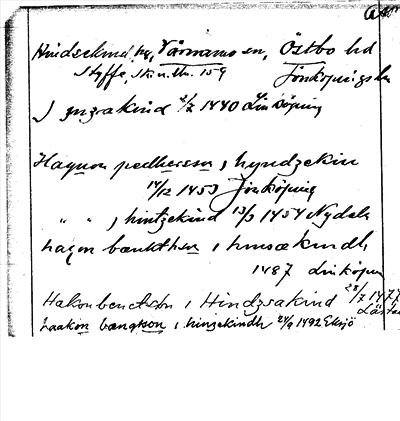 Hindsekind hg, Värnamo sn, Östbo hd
Styffe, Skand. u. Un. 159 Jönköpings län
J ynzakind 2/2 1440 Linköping
Haquon pedhersson, hyndzekin
14/12 1453 Jönköping
" " , hintzekind 13/3 1454 Nydala
hagon bænkthsn, i hinsækindh,
1487 Linköpin
Hakon benctson i Hindzsakind 28/7 1477
haakon bængtson, i hinzekindh 24/9 1492 Eksjö